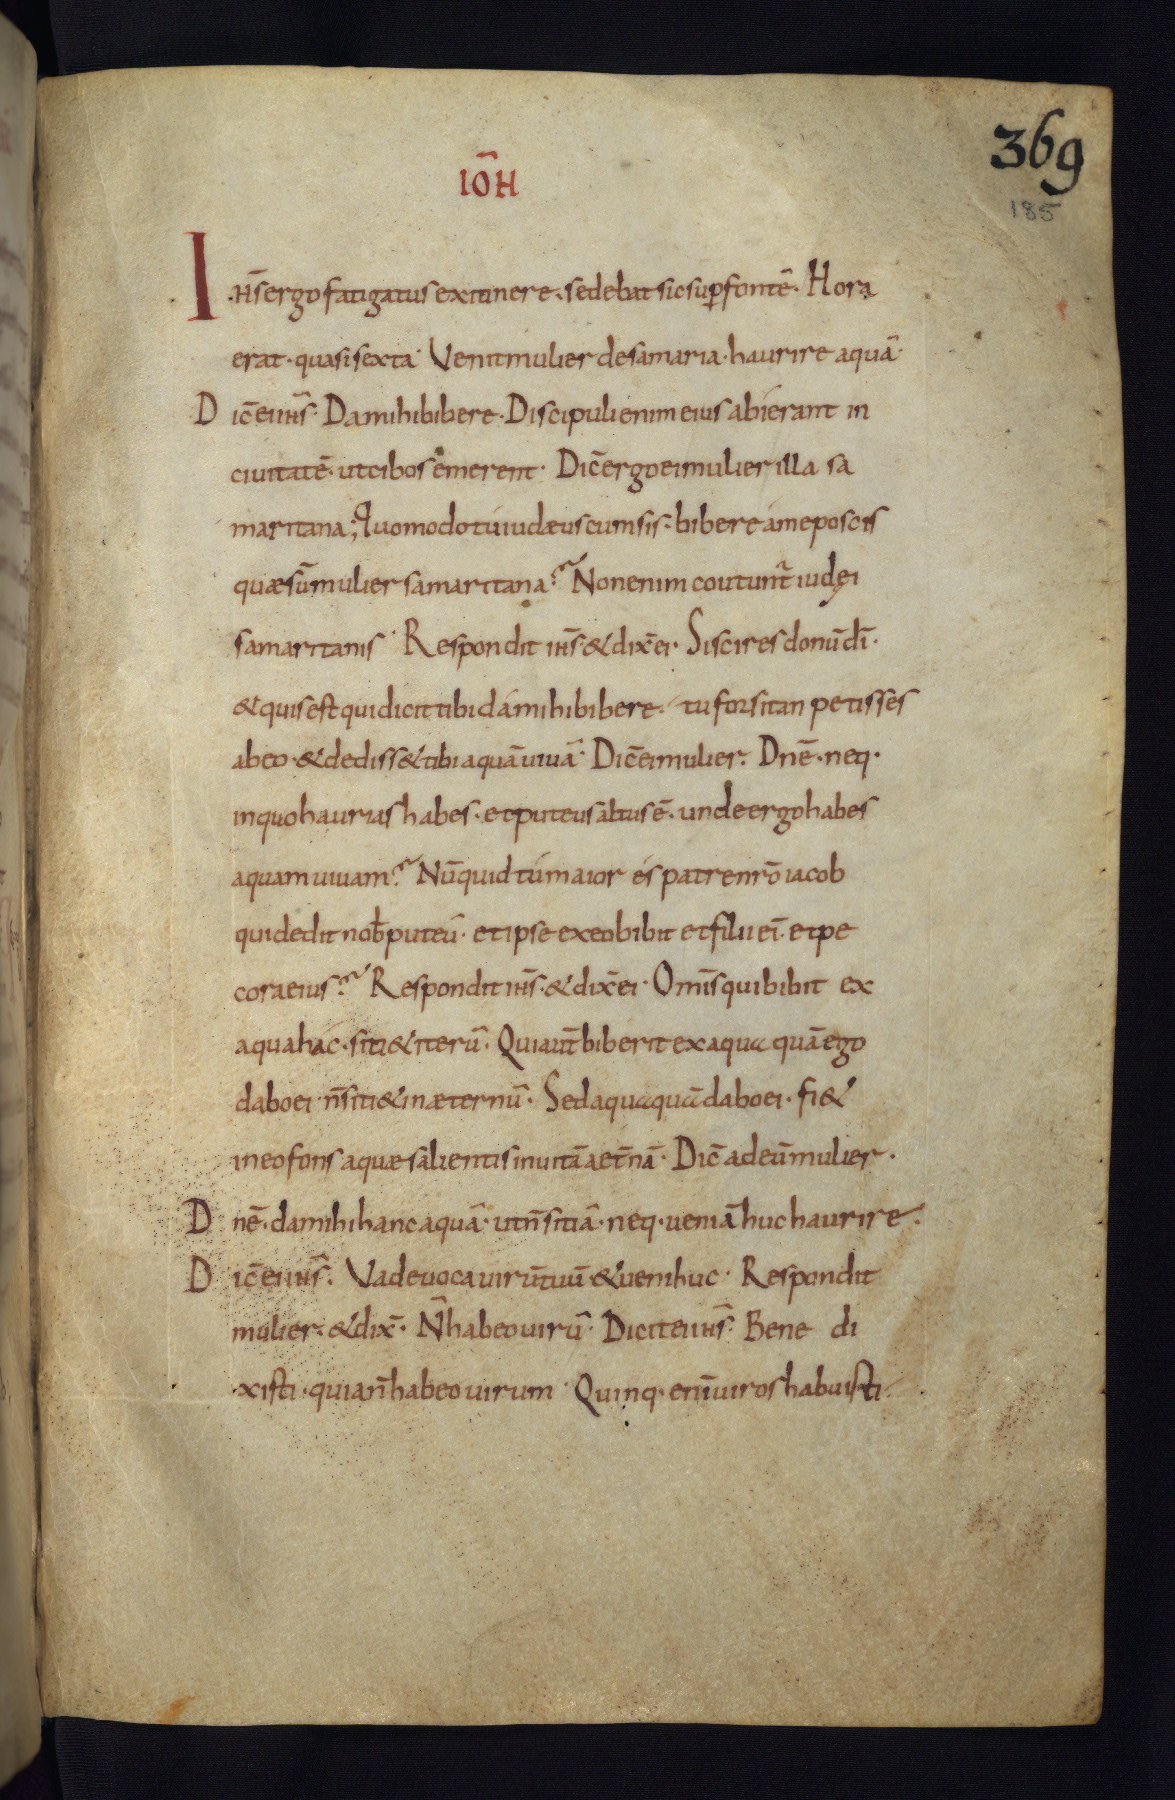 369
185
IOH̄
IH̄s ergo fatigatus ex itinere. sedebat sic sup̄ fontē. Hora
erat. quasi sexta. Venit mulier de samaria. haurire aquā.
Dic̄ ei ih̄s. Da mihi bibere. Discipuli enim eius abierant in
ciuitatē. ut cibos emerent. Dic̄ ergo ei mulier illa sa
maritana; Quomodo tú iudæus cum sis. bibere á me poscis
quæ sū mulier samaritana? Non enim coutunt̄ iudęi
samaritanis. Respondit ih̄s & dix̄ ei. Si scires donū dī.
& quis est qui dicit tibi dá mihi bibere. tu forsitan petisses
ab eo. & dediss& tibi aquā uiuā. Dic̄ ei mulier. Dnē. neq.
in quo haurias habes. et puteus altus ē. unde ergo habes
aquam uiuam? Nūquid tú maior és patre nr̄o iacob
qui dedit nob̄ puteū. et ipse ex eo bibit et filii eī. et pe
cora eius? Respondit ih̄s. & dix̄ ei. Om̄is qui bibit ex
aqua hác. siti& iterū. Qui aut̄ biberit ex aqua quā ego
dabo ei. n̄ siti& in æternū. Sed aqua quā dabo ei. fi&
in eo fons aquæ salientis in uitā aet̄nā. Dic̄ ad eū mulier.
Dnē. da mihi hanc aquā. ut n̄ sitiā. neq. ueniā huc haurire.
Dic̄ ei ih̄s. Vade uoca uirū tuū & ueni huc. Respondit
mulier. & dix̄. N̄ habeo uirū. Dicit ei ih̄s. Bene di
xisti. quia n̄ habeo uirum. Quinq. enī uiros habuisti.